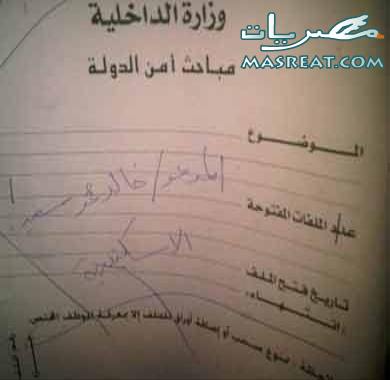 وزارة الداخلية
مصريات
MASREAT.COM
مباحث أمن الدولة
المـوضـوع
المدعو / خالد محمد سعيد
عدد الملفات المفتوحة
الاسكندرية
تاريخ فتح الملف
« انتهاء »
ملاحظة : ممنوع سحب أو إضافة أوراق للملف إلا بمعرفة الموظف المختص